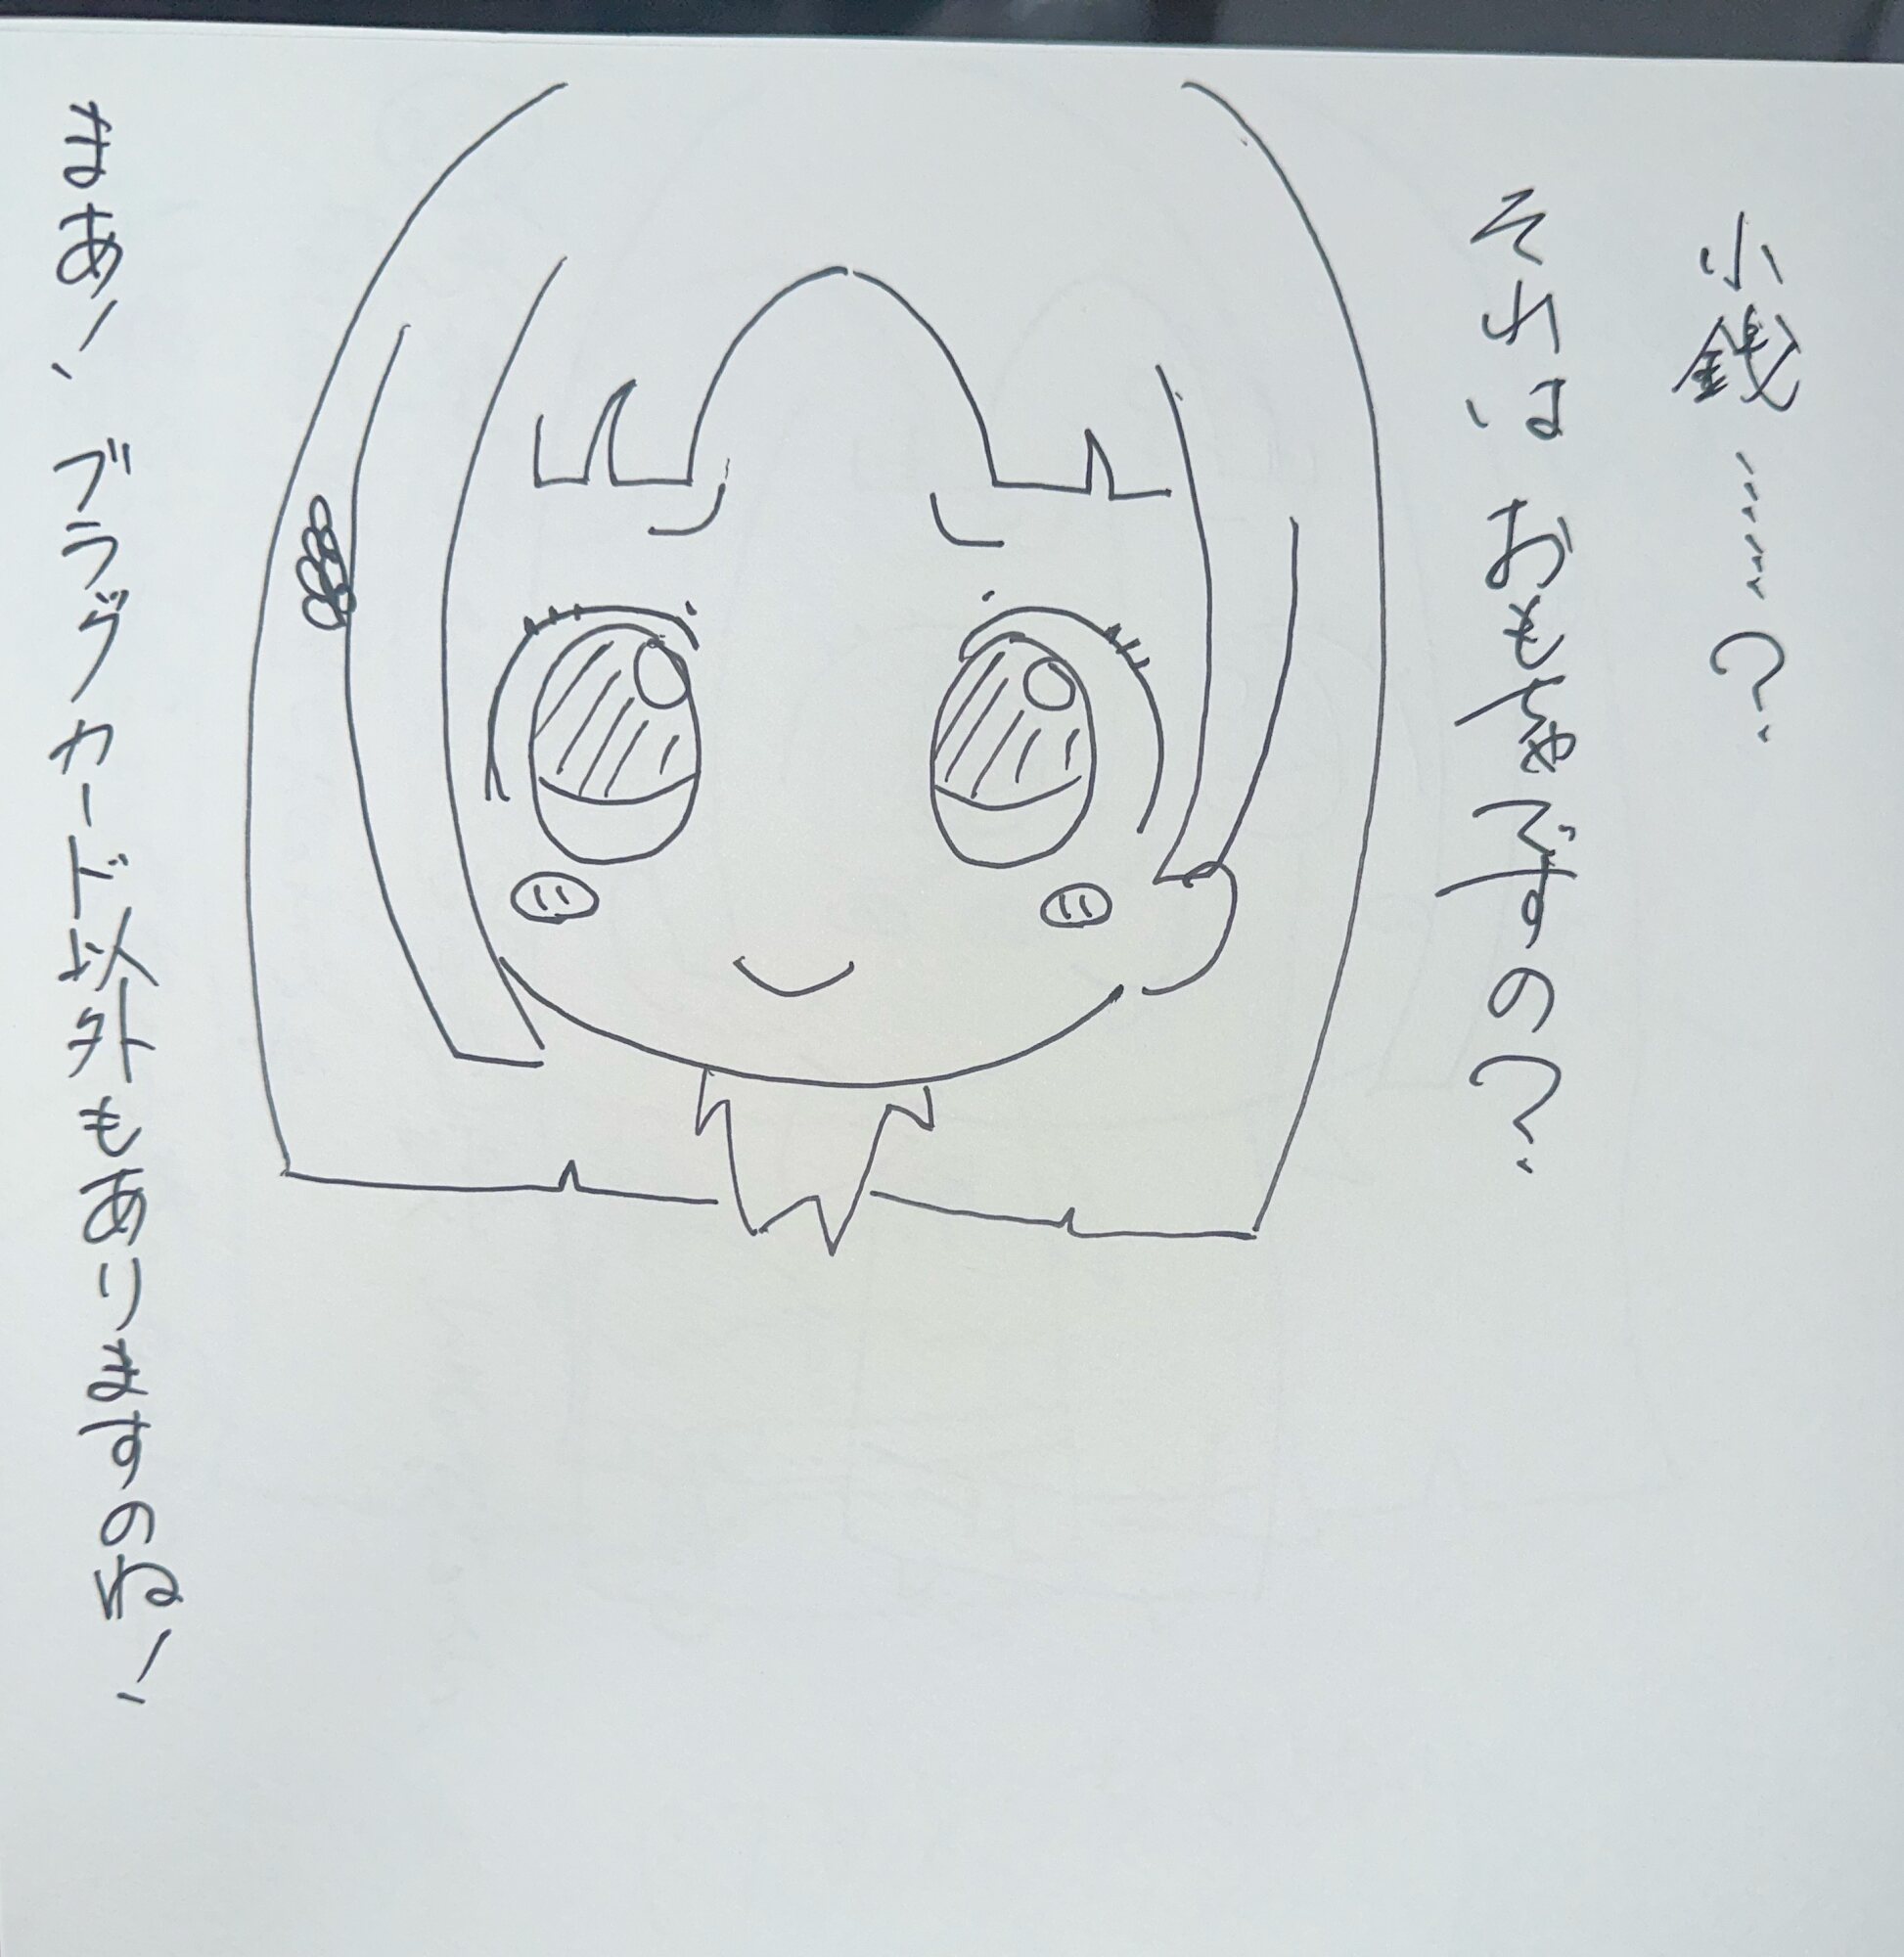 小銭……?
それはおもちゃですの?
まあ！ブラグカード以外もありますのね！